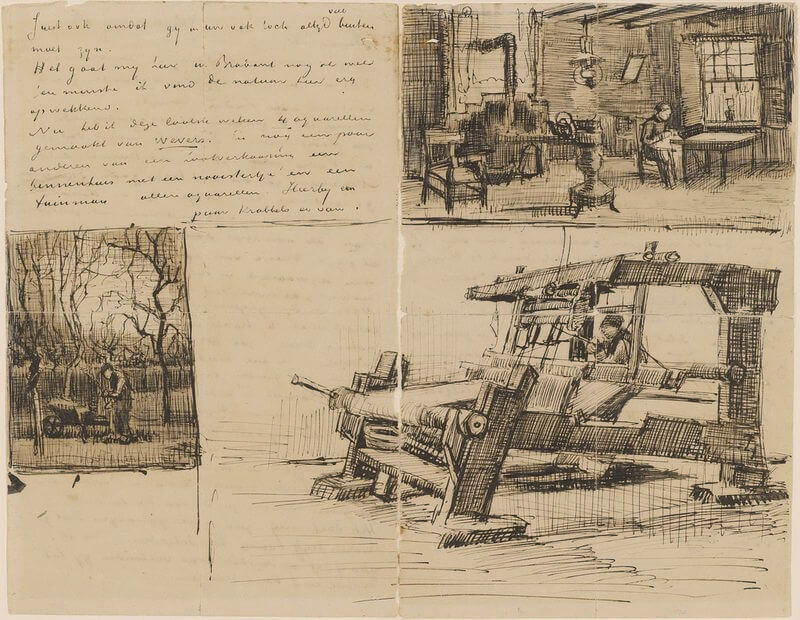 veel
Juist ook omdat gy in uw vak toch altyd buiten
moet zyn.
Het gaat my hier in Brabant nog al mee
ten minste ik vind de natuur hier erg
opwekkend.
Nu heb ik deze laatste weken 4 aquarellen
gemaakt van wevers. En nog een paar
anderen van een houtverkooping een
binnenhuis met een naaistertje en een
tuinman allen aquarellen. Hierby een
paar krabbels er van.